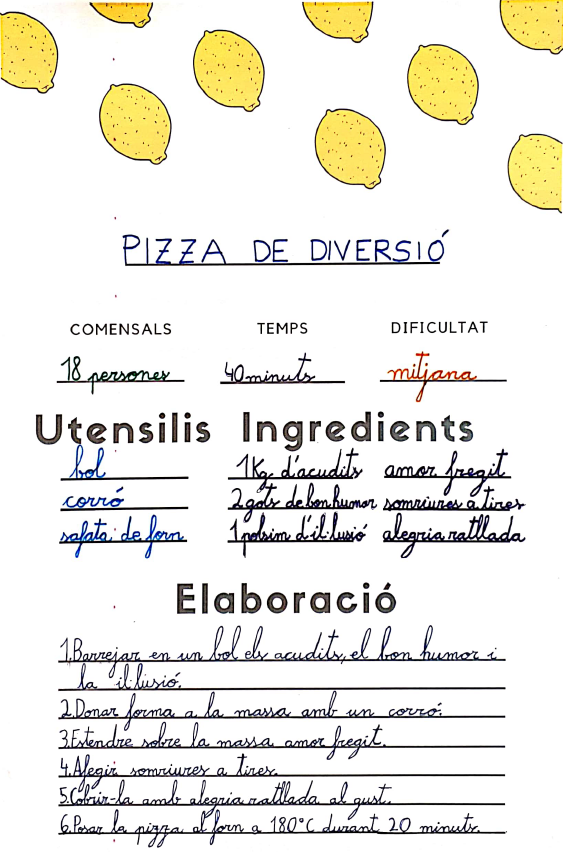 PIZZA DE DIVERSIÓ
COMENSALS TEMPS DIFICULTAT
18 persones 40 minuts mitjana
Utensilis Ingredients
bol 1Kg d'acudits amor fregit
corró 2 gots de bon humor somriures a tires
safata de forn 1 polsim d'il·lusió alegria ratllada
Elaboració
1. Barrejar en un bol els acudits, el bon humor i
la il·lusió.
2. Donar forma a la massa amb un corró.
3. Estendre sobre la massa amor fregit.
4. Afegir somriures a tires.
5. Cobrir-la amb alegria ratllada al gust.
6. Posar la pizza al forn a 180°C durant 20 minuts.